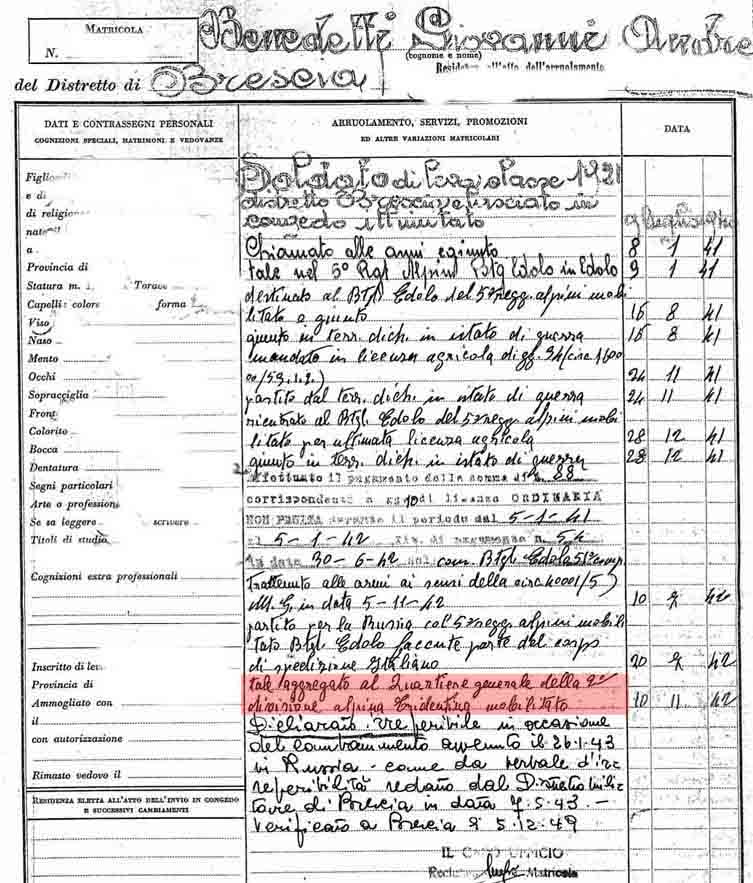 MATRICOLA
N.
Benedetti Giovanni Andrea
(cognome e nome)
Residenza all'atto dell'arruolamento
del Distretto di Brescia
DATI E CONTRASSEGNI PERSONALI
COGNIZIONI SPECIALI, MATRIMONI E VEDOVANZE
ARRUOLAMENTO, SERVIZI, PROMOZIONI
ED ALTRE VARIAZIONI MATRICOLARI
DATA
Figlio
e di
di religione
nato il
a
Provincia di
Statura m. 1 Torace
Capelli: colore forma
Viso
Naso
Mento
Occhi
Sopracciglia
Fronte
Colorito
Bocca
Dentatura
Segni particolari
Arte o professione
Se sa leggere scrivere
Titoli di studio
Cognizioni extra professionali
Inscritto di leva
Provincia di
Ammogliato con
il
con autorizzazione
Rimasto vedovo il
RESIDENZA ELETTA ALL'ATTO DELL'INVIO IN CONGEDO
E SUCCESSIVI CAMBIAMENTI
Soldato di leva classe 1921
distretto Brescia e lasciato in
congedo illimitato
Chiamato alle armi e giunto 8 1 41
tale nel 5° Rgt Alpini Btg Edolo in Edolo 9 1 41
destinato al Btg. Edolo del 5° regg. alpini mobi
litato e giunto 15 8 41
giunto in terr. dich. in istato di guerra 15 8 41
mandato in licenza agricola di gg.
24 11 41
partito dal terr. dich. in istato di guerra 24 11 41
rientrato al Btg. Edolo del 5° regg. alpini mobi
litato per ultimata licenza agricola 28 12 41
giunto in terr. dich. in istato di guerra 28 12 41
Effettuato il pagamento della somma di L. 88
corrispondente a gg. 10 di licenza ORDINARIA
NON FRUITA durante il periodo dal 5-1-41
al 5-1-42 n. 54
in data 30-6-42 com. Btg. Edolo 51° comp
Trattenuto alle armi ai sensi della circ 40001/5)
M. G. in data 5-11-42 10 42
partito per la Russia col 5° regg. alpini mobili
tato Btg. Edolo facente parte del corpo
di spedizione Italiano 20 7 42
tale aggregato al Quartiere generale della 2a
divisione alpina Tridentina mobilitato 10 11 42
Dichiarato irreperibile in occasione
del combattimento avvenuto il 26.1.43
in Russia - come da verbale d'irre
reperibilità redatto dal Distretto mili
tare di Brescia in data 7.5.43. -
Verificato a Brescia li 5.12.49
IL CAPO UFFICIO
Matricola